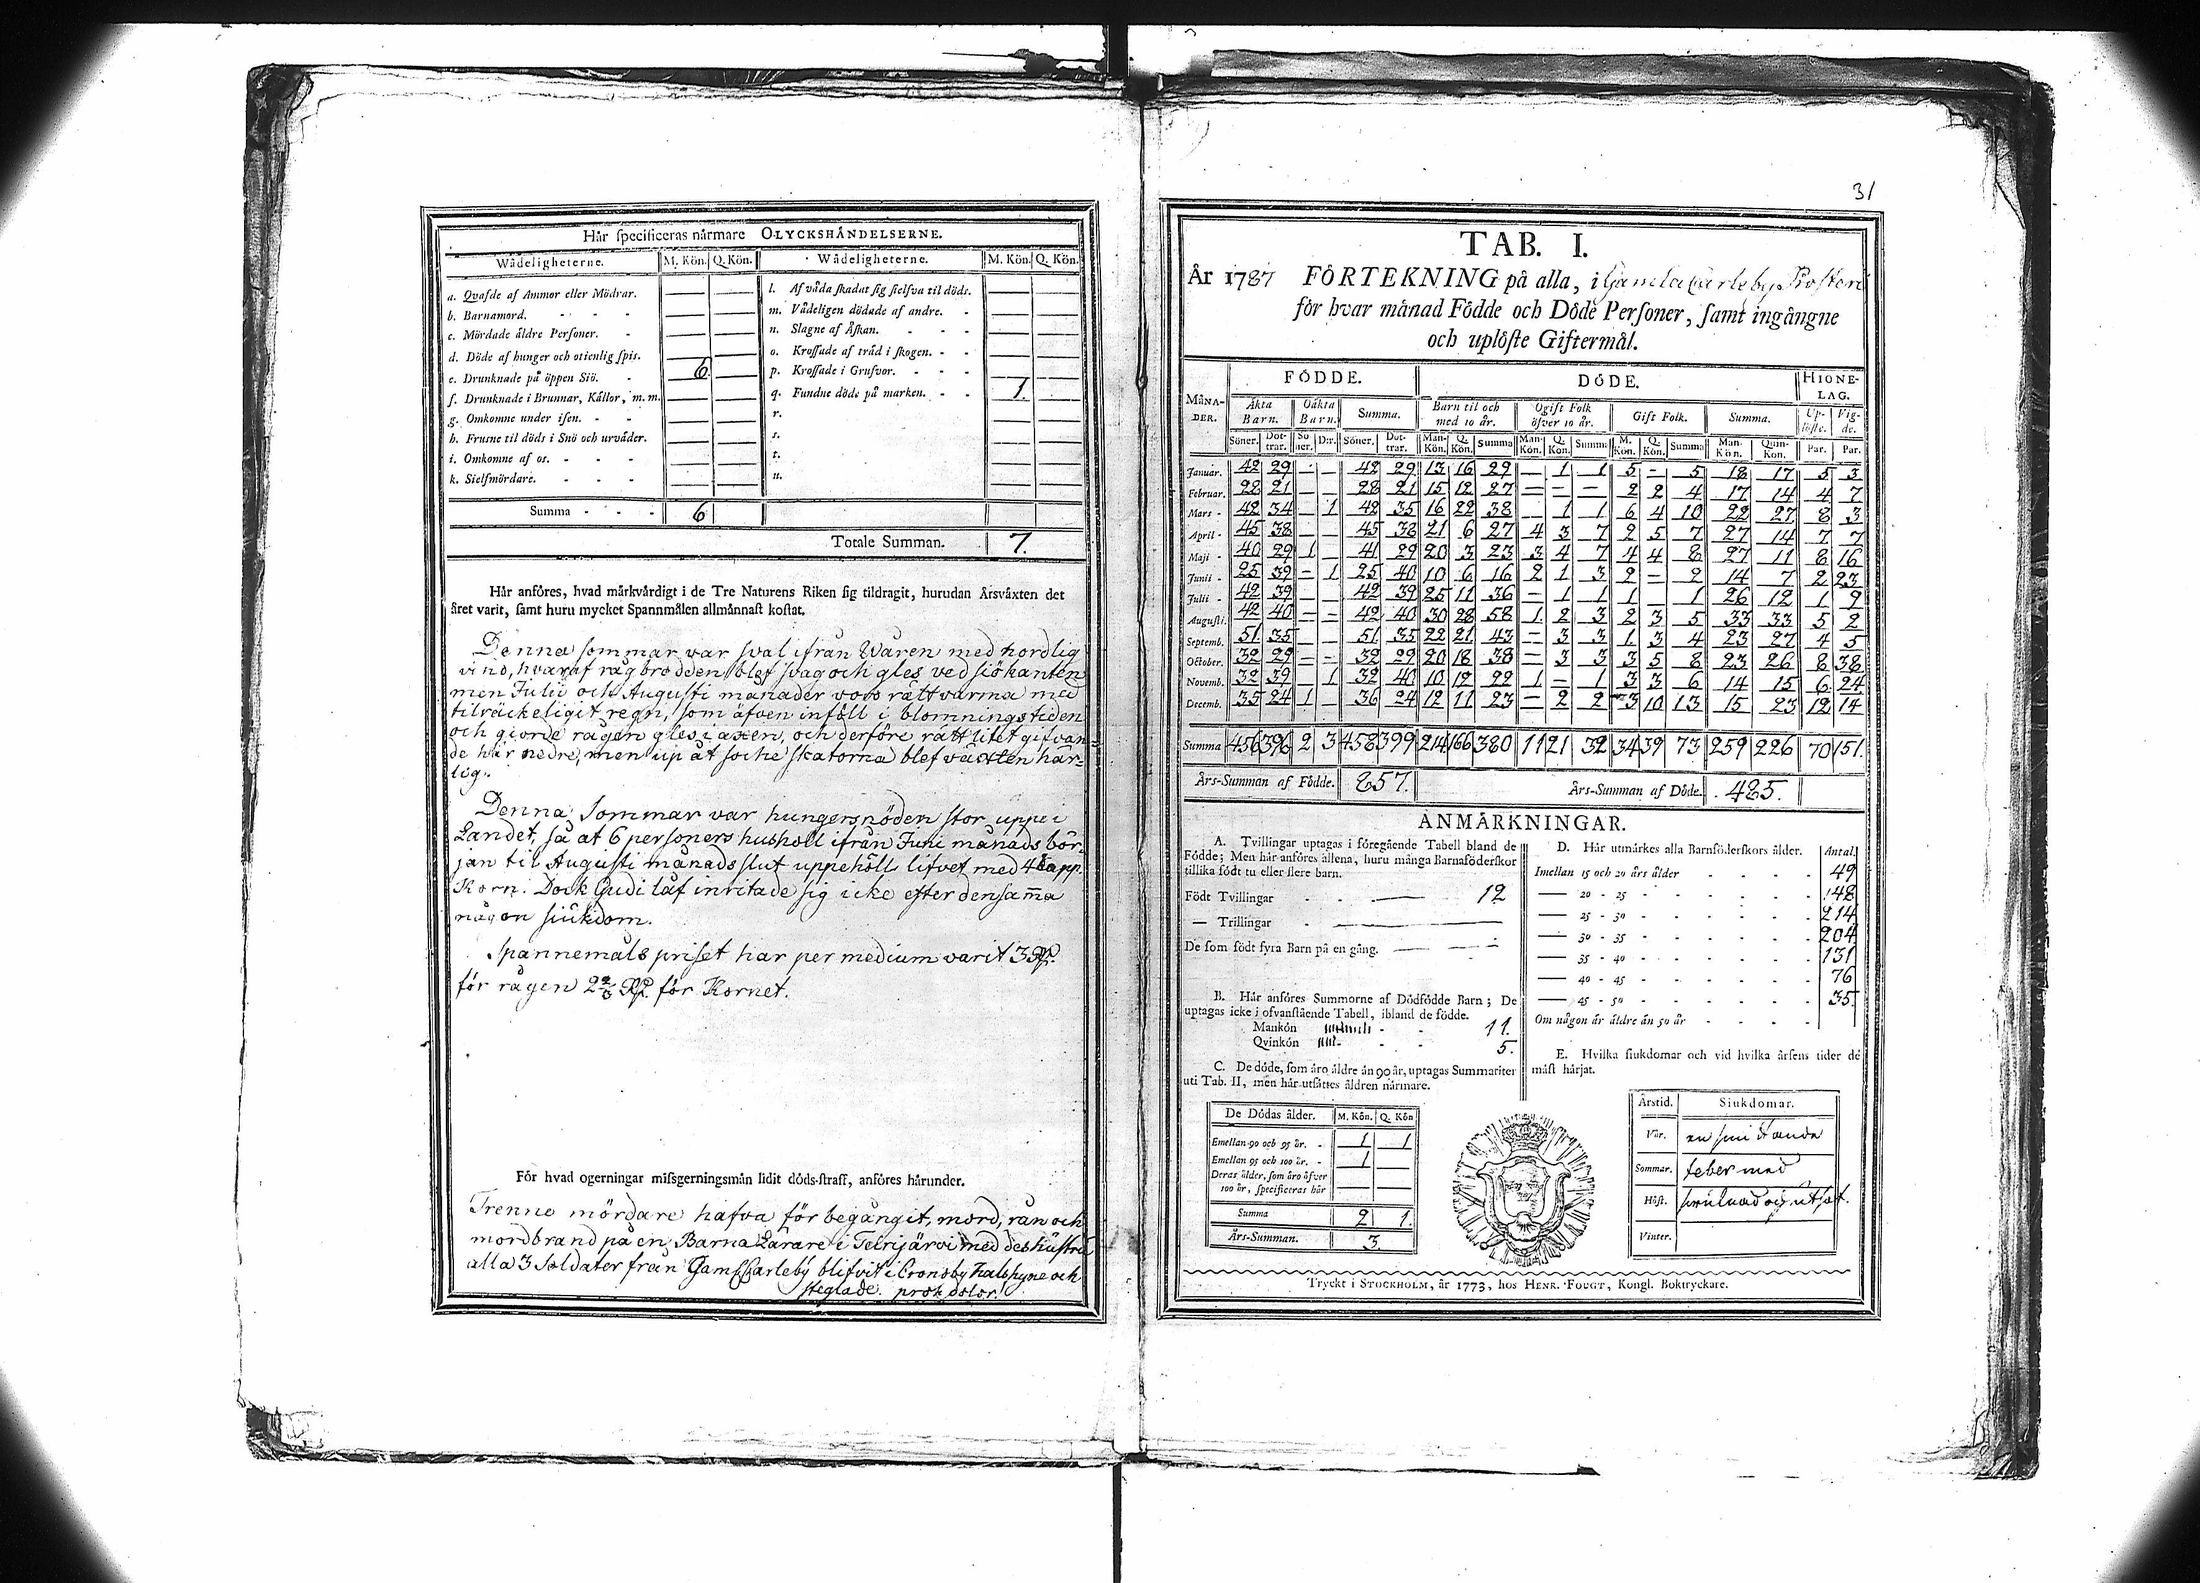 Hår specificeras nårmare OLYCKSHÅNDELSERNE.
Wådeligheterne. M. Kön. Q. Kön. Wådeligheterne. M. Kön. Q. Kön.
a. Qvafde af Ammor eller Mödrar. — — l. Af våda skadat sig sielfva til döds. — —
b. Barnamord. — — m. Vådeligen dödade af andre. — —
c. Mördade åldre Personer. — — n. Slagne af Åskan. — —
d. Döde af hunger och otienlig spis. — — o. Krossade af tråd i skogen. — —
e. Drunknade på öppen Siö. 6 — p. Krossade i Grufvor. — —
f. Drunknade i Brunnar, Kållor, m. m. — — q. Fundne döde på marken. 1. —
g. Omkomne under isen. — — r. — —
h. Frusne til döds i Snö och urvåder. — — s. — —
i. Omkomne af os. — — t. — —
k. Sielfmördare. — — u. — —
Summa - - - 6
Totale Summan. 7.
Hår anföres, hvad mårkvårdigt i de Tre Naturens Riken sig tildragit, hurudan Årsvåxten det
året varit, samt huru mycket Spannmålen allmånnast kostat.
Denna sommar var sval ifrån Våren med nordlig
vind, hvaraf rågbrodden blef svag och gles ved siökanten
men Julii och Augusti månader voro rätt varma med
tilräckeligit regn, som äfven inföll i blomningstiden
och giorde rågen gles i axen, och derföre rätt litet gifvan=
de här nedre, men up åt sockneskatorna blef växten här=
lig.
Denna Sommar var hungersnöden stor uppe i
Landet, så at 6 personers hushåll ifrån Junii månads bör=
jan til Augusti månads slut uppehöll lifvet med 4 kapp.
Korn. Dock Gudi låf inritade sig icke efter densamma
någon siukdom.
Spannemåls priset har per medium varit 3 Rd.
för rågen 2 2/3 Rd. för Kornet.
För hvad ogerningar missgerningsmån lidit döds-straff, anföres hårunder.
Trenne mördare hafva för begångit, mord, rån och
mordbrand på en Barna Lärare i Terijärvi med des hustru
alla 3 Soldater från Gaml Carleby blifvit i Cronoby halshugne och
steglade. proh dolor!
31
TAB. I.
År 1787 FÖRTEKNING på alla, i Gamla Carleby Prosteri
för hvar månad Födde och Döde Personer, samt ingångne
och uplöste Giftermål.
MÅNADER. FÖDDE. DÖDE. HIONELAG.
Åkta Barn. Oåkta Barn. Summa. Barn til och med 10 år. Ogift Folk öfver 10 år. Gift Folk. Summa. Uplöste. Vigde.
Söner. Dottrar. Söner. Dtr. Söner. Dottrar. Man-Kön. Q. Kön. Summa Man-Kön. Q. Kön. Summa M. Kön. Q. Kön. Summa Man-Kön. Quin-Kon. Par. Par.
Januar. 42 29 - — 42 29 13 16 29 — 1 1 5 - 5 18 17 5 3
Februar. 28 21 — — 28 21 15 12 27 — — — 2 2 4 17 14 4 7
Mars - 42 34 — 1 42 35 16 22 38 — 1 1 6 4 10 22 27 8 3
April - 45 38 — — 45 38 21 6 27 4 3 7 2 5 7 27 14 7 7
Maji - 40 29 1 — 41 29 20 3 23 3 4 7 4 4 8 27 11 8 16
Junii - 25 39 — 1 25 40 10 6 16 2 1 3 2 — 2 14 7 2 23
Julii - 42 39 — — 42 39 25 11 36 — 1 1 1 — 1 26 12 1 9
Augusti. 42 40 — — 42 40 30 28 58 1 2 3 2 3 5 33 33 5 2
Septemb. 51 35 — — 51 35 22 21 43 — 3 3 1 3 4 23 27 4 5
October. 32 29 — — 32 29 20 18 38 — 3 3 3 5 8 23 26 8 38
Novemb. 32 39 — 1 32 40 10 12 22 1 — 1 3 3 6 14 15 6 24
Decemb. 35 24 1 — 36 24 12 11 23 — 2 2 3 10 13 15 23 12 14
Summa 456 396 2 3 458 399 214 166 380 11 21 32 34 39 73 259 226 70 151.
Års-Summan af Födde. 857. Års-Summan af Döde. 485.
ANMÅRKNINGAR.
A. Tvillingar uptagas i föregående Tabell bland de
Födde; Men hår anföres allena, huru många Barnaföderskor
tillika födt tu eller flere barn.
Födt Tvillingar - - — 12
— Trillingar - —
De som födt fyra Barn på en gång. —
B. Hår anföres Summorne af Dödfödde Barn; De
uptagas icke i ofvanstående Tabell, ibland de födde.
Mankön - - 11.
Qvinkön - - 5.
C. De döde, som åro åldre ån 90 år, uptagas Summariter
uti Tab. II, men hår utsåttes åldren nårmare.
De Dödas ålder. M. Kön. Q. Kön
Emellan 90 och 95 år. - 1 1
Emellan 95 och 100 år. - 1 —
Deras ålder, som åro öfver
100 år, specificeras hår
Summa 2 1.
Års-Summan. 3.
D. Hår utmårkes alla Barnföderskors ålder. Antal.
Imellan 15 och 20 års ålder - - - - 49
— 20 - 25 - - - - 148
— 25 - 30 - - - - 214
— 30 - 35 - - - - 204
— 35 - 40 - - - - 131
— 40 - 45 - - - - 76
— 45 - 50 - - - - 35.
Om någon år åldre ån 50 år - - - -
E. Hvilka siukdomar och vid hvilka årsens tider de
måst hårjat.
Årstid. Siukdomar.
Vår. en smittande
Sommar. feber med
Höst. och utsot.
Vinter.
Tryckt i STOCKHOLM, år 1773, hos HENR. FOUGT, Kongl. Boktryckare.